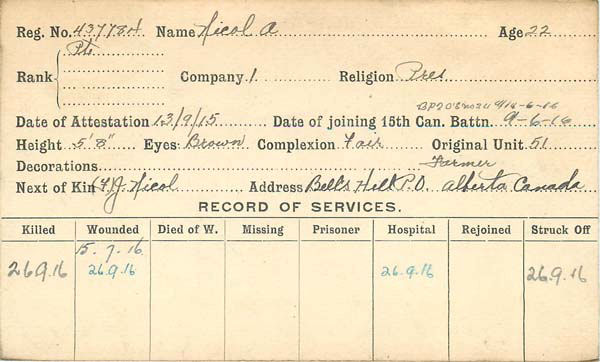 Reg. No. 437784 Name Nicol A Age 22
Pte
Rank Company 1 Religion Pres
9/18-6-16
Date of Attestation 13/9/15 Date of joining 15th Can. Battn. 9-6-16
Height 5'8" Eyes: Brown Complexion Fair Original Unit 51
Decorations Farmer
Next of Kin (F) J Nicol Address Bells Hill P.O. Alberta Canada
RECORD OF SERVICES.
Killed Wounded Died of W. Missing Prisoner Hospital Rejoined Struck Off
15.7.16
26.9.16 26.9.16 26.9.16 26.9.16